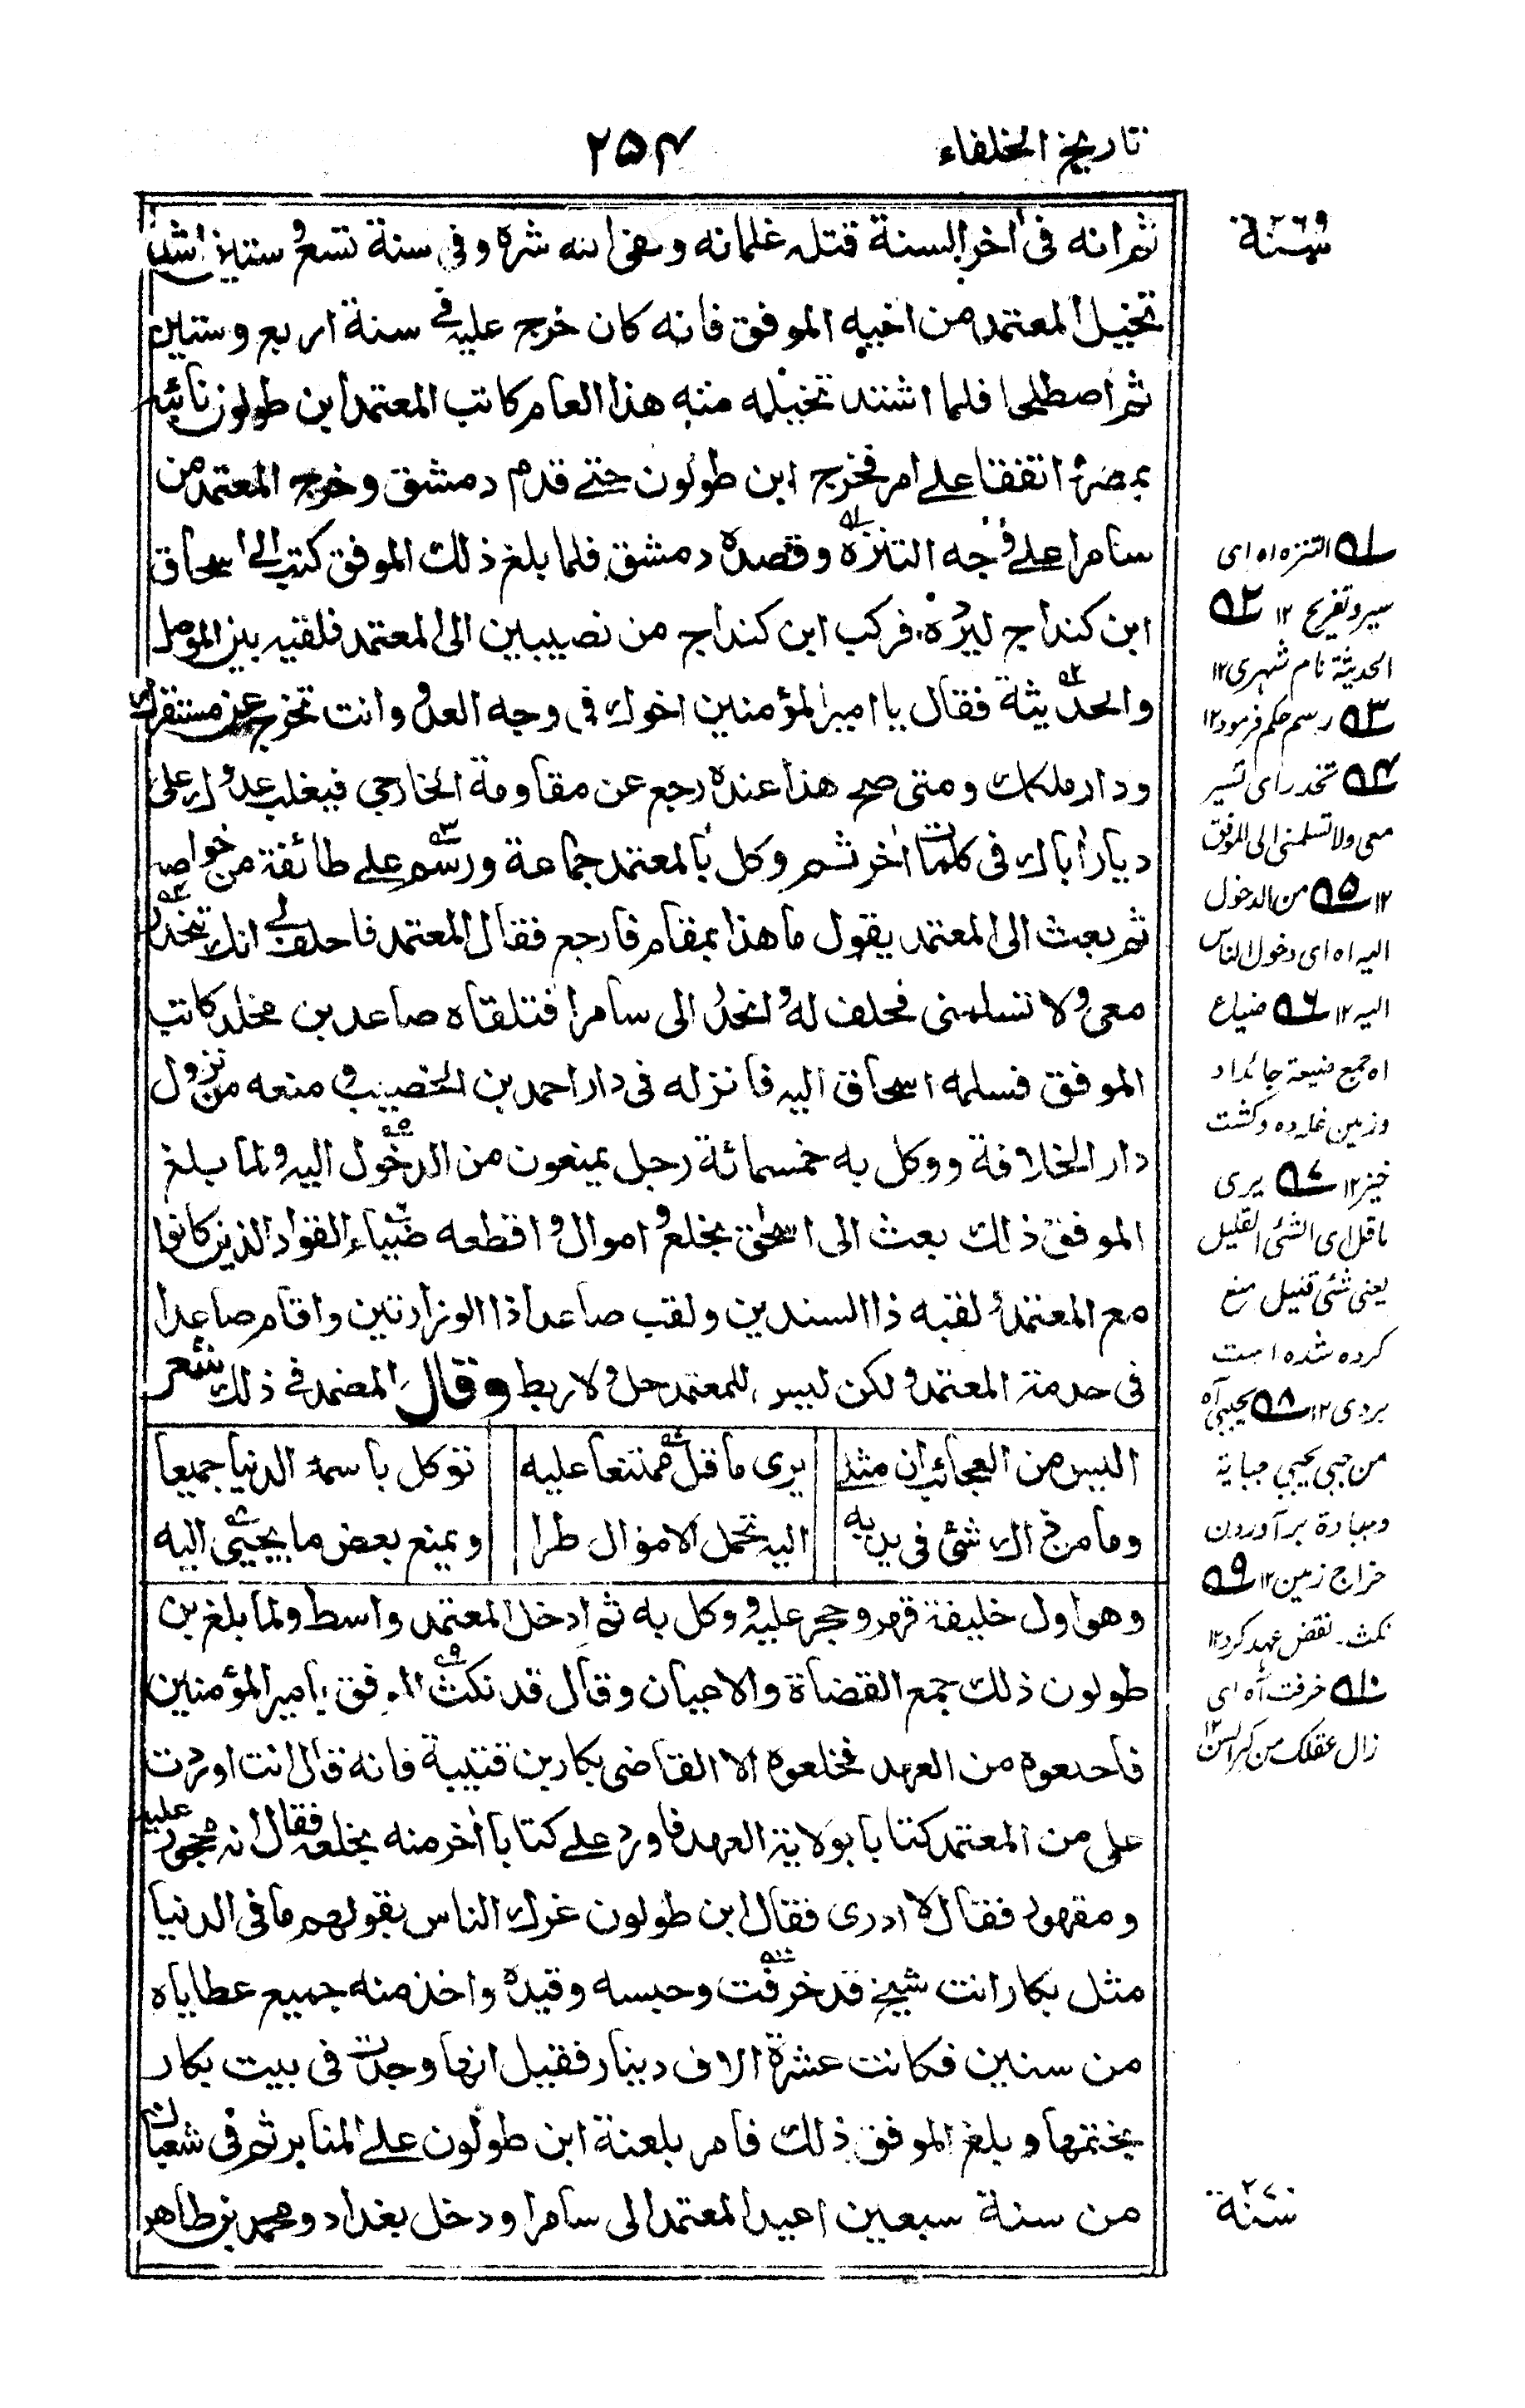 تاريخ الخلفاء
٢٥٤
ثم انه فى اخر السنة قتله غلمانه وكفى الله شره وفى سنة تسع وستين اشتد
تخيل المعتمد من اخيه الموفق فانه كان خرج عليه فى سنة اربع وستين
ثم اصطلحا فلما اشتد تخيله منه هذا العام كاتب المعتمد ابن طولون نائبه
بمصر واتفقا على امر فخرج ابن طولون حتى قدم دمشق وخرج المعتمد من
سامرا على وجه التنزه وقصده دمشق فلما بلغ ذلك الموفق كتب الى اسحاق
ابن كنداج ليرده فركب ابن كنداج من نصيبين الى المعتمد فلقيه بين الموصل
والحديثة فقال يا امير المؤمنين اخوك فى وجه العدو وانت تخرج عن مستقرك
ودار ملكك ومتى صح هذا عنده رجع عن مقاومة الخارجي فيغلب عدوك على
ديار اباءك فى كلمات اخر ثم وكل بالمعتمد جماعة ورسم على طائفة من خواصه
ثم بعث الى المعتمد يقول ما هذا بمقام فارجع فقال المعتمد فاحلف لى انك تنحدر
معى ولا تسلمنى فحلف له وانحدر الى سامرا فتلقاه صاعد بن مخلد كاتب
الموفق فسلمه اسحاق اليه فانزله فى دار احمد بن الخصيب ومنعه من نزول
دار الخلافة ووكل به خمسمائة رجل يمنعون من الدخول اليه ولما بلغ
الموفق ذلك بعث الى اسحٰق بخلع واموال واقطعه ضياع القواد الذين كانوا
مع المعتمد ولقبه ذا السندين ولقب صاعدا ذا الوزارتين واقام صاعدا
فى خدمة المعتمد ولكن ليس للمعتمد حل ولا ربط وقال المعتمد فى ذلك شعر
اليس من العجائب ان مثلى يرى ما قل ممتنعا عليه توكل باسمه الدنيا جميعا
وما من ذاك شئ فى يديه اليه تحمل الاموال طرا ويمنع بعض ما يجبى اليه
وهو اول خليفة قهر وحجر عليه ووكل به ثم ادخل المعتمد واسط ولما بلغ بن
طولون ذلك جمع القضاة والاعيان وقال قد نكث الموفق بامير المؤمنين
فاخلعوه من العهد فخلعوه الا القاضى بكار بن قتيبة فانه قال انت اوردت
على من المعتمد كتابا بولاية العهد فاورد على كتابا اخر منه بخلعه فقال انه محجور عليه
ومقهور فقال لا ادرى فقال ابن طولون غرك الناس بقولهم ما فى الدنيا
مثل بكار انت شيخ قد خرفت وحبسه وقيده واخذ منه جميع عطاياه
من سنين فكانت عشرة الاف دينار فقيل انها وجدت فى بيت بكار
بختمها وبلغ الموفق ذلك فامر بلعنة ابن طولون على المنابر ثم فى شعبان
من سنة سبعين اعيد المعتمد الى سامرا ودخل بغداد ومحمد بن طاهر
سنة ٢٦٩
لـ٥١ التنزه اه اى
سير و تفريح ١٢ ٥٢
الحديثة نام شهرى ١٢
٥٣ رسم حكم فرمود ١٢
٥٤ تنحدر اى تسير
معى ولا تسلمنى الى الموفق
١٢ ٥٥ من الدخول
اليه اه اى دخول الناس
اليه ١٢ ٥٦ ضياع
اه جمع ضيعة جائداد
وزمين غله ده وكشت
خيز ١٢ ٥٧ يرى
ما قل اى الشئ القليل
يعنى شئ قليل منع
كرده شده است
بر دى ١٢ ٥٨ يجبى آه
من جبى يجبى جباية
وجباوة برآوردن
خراج زمين ١٢ ٥٩
نكث نقض عهد كرد ١٢
٥١٠ خرفت آه اى
زال عقلك من كبر السن ١٢
سنة ٢٧٠